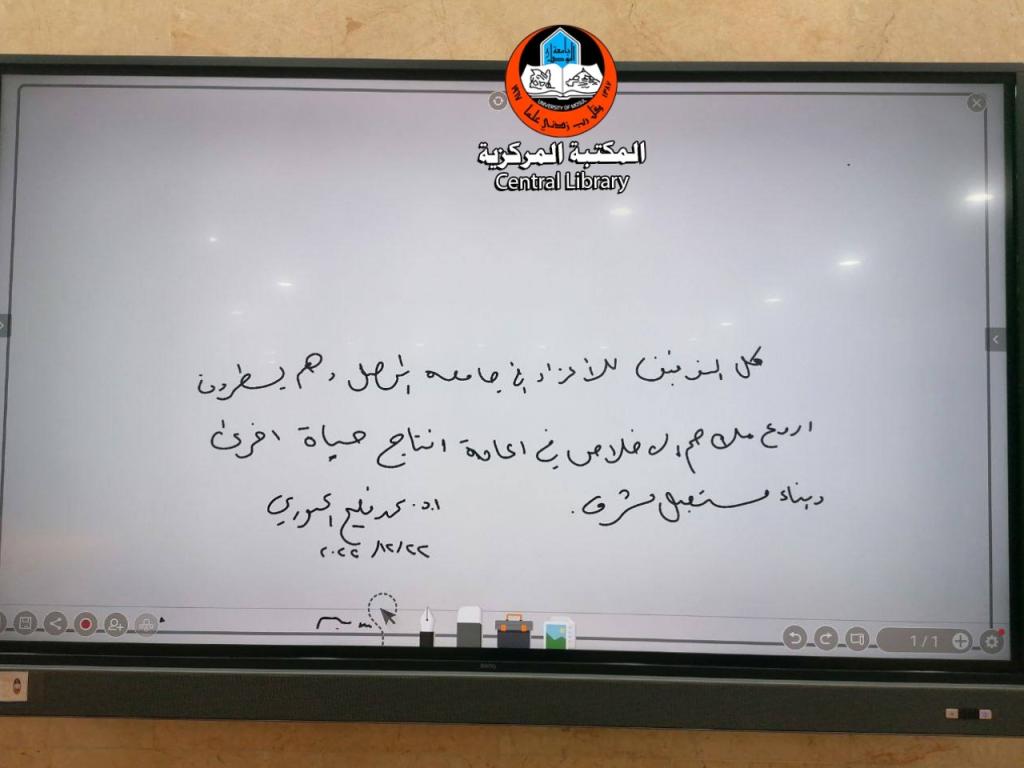 جامعة الموصل
UNIVERSITY OF MOSUL
١٩٦٧
وقل رب زدني علما
١٣٨٧
المكتبة المركزية
Central Library
كل التوفيق للأعزاء في جامعه الموصل وهم يسطرون
اروع ملاحم الاخلاص في اعادة انتاج حياة اخرى
وبناء مستقبل مشرق.
ا.د. محمد فليح الجبوري
٢٠٢٢/١٢/٢٢
1/1
BenQ